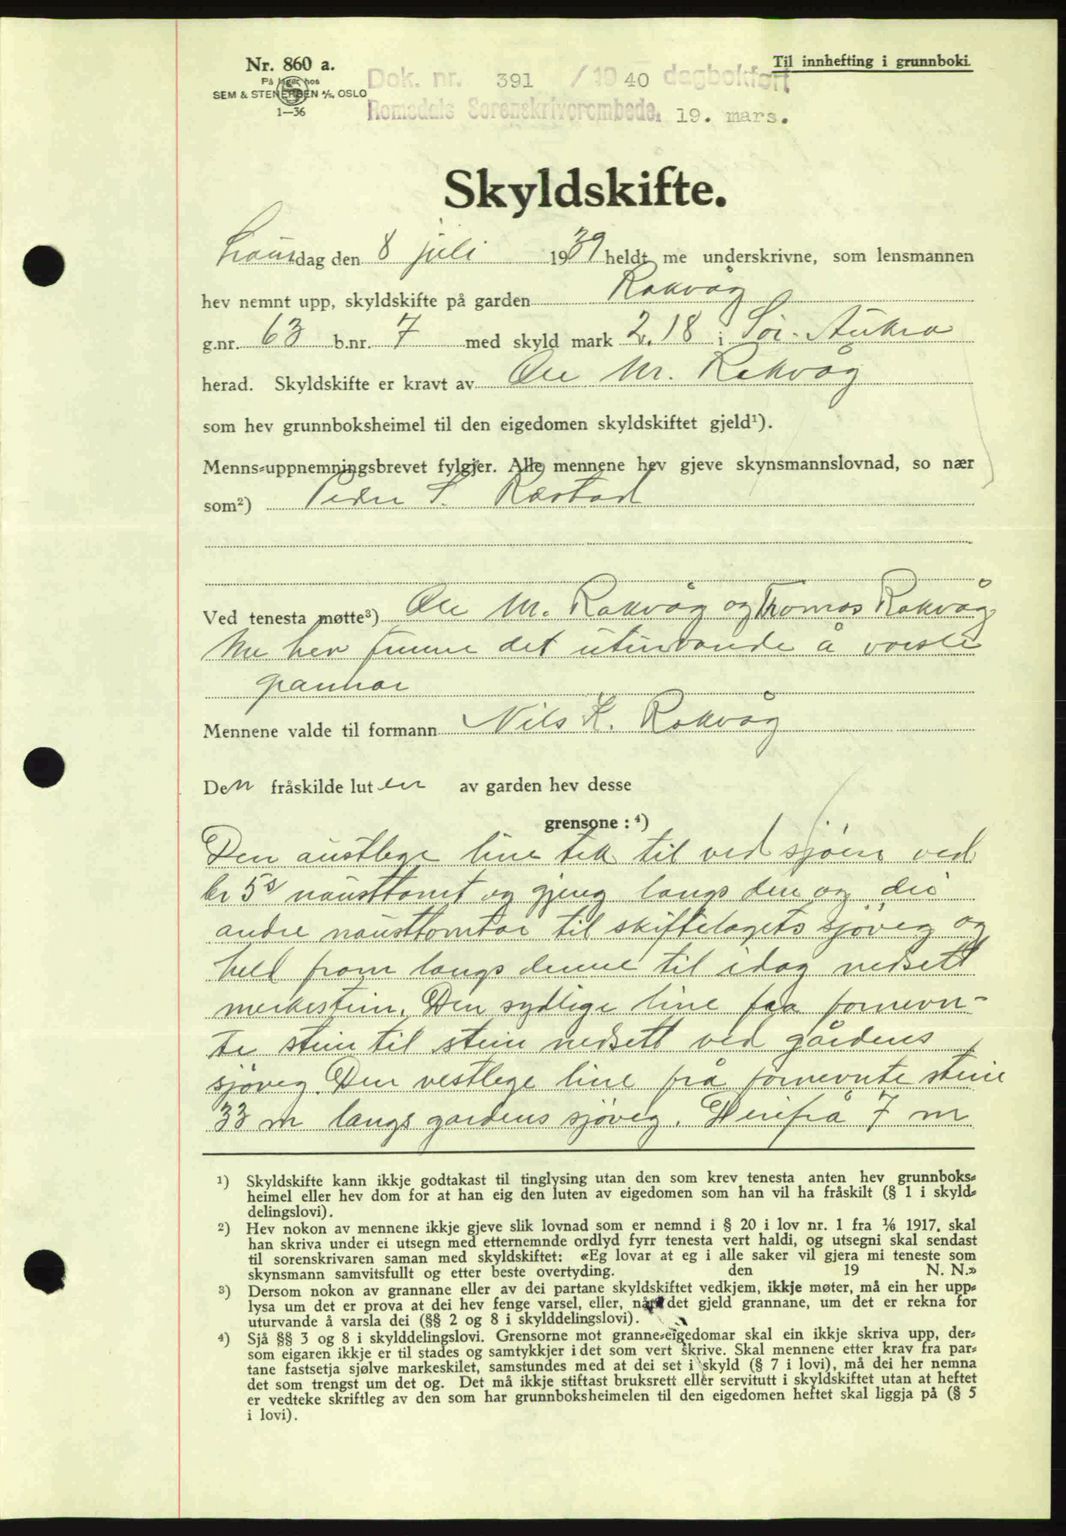 Nr. 860 a.
På lager hos
SEM & STENERSEN A/S, OSLO
1—36
Til innhefting i grunnboki
Dok. nr. 391 / 1940 dagbokført
Romsdals Sorenskriverembede, 19. mars.
Skyldskifte.
Laurdag den 8 juli 1939 heldt me underskrivne, som lensmannen
hev nemnt upp, skyldskifte på garden Rakvåg
g.nr. 63 b.nr. 7 med skyld mark 2.18 i Sör-Aukra
herad. Skyldskifte er kravt av Ole M. Rakvåg
som hev grunnboksheimel til den eigedomen skyldskiftet gjeld¹).
Menns-uppnemningsbrevet fylgjer. Alle mennene hev gjeve skynsmannslovnad, so nær
som²) Peder S. Røstad
Ved tenesta møtte³) Ole M. Rakvåg og Thomas Rakvåg
Me hev funne det uturvande å varsle
grannar
Mennene valde til formann Nils K. Rakvåg
Den fråskilde luten av garden hev desse
grensone : ⁴)
Den austlege line tek til ved sjöen ved
br 5s nausttomt og gjeng langs den og dei
andre nausttomtar til skiftelagets sjöveg og
held fram langs denne til idag nedsett
merkestein. Den sydlige line fra fornevn-
te stein til stein nedsett ved gårdens
sjöveg. Den vestlege line frå fornevnte stein
33 m langs gardens sjöveg. Herifrå 7 m
¹) Skyldskifte kann ikkje godtakast til tinglysing utan den som krev tenesta anten hev grunnboks-
heimel eller hev dom for at han eig den luten av eigedomen som han vil ha fråskilt (§ 1 i skyld-
delingslovi).
²) Hev nokon av mennene ikkje gjeve slik lovnad som er nemnd i § 20 i lov nr. 1 fra 1/6 1917, skal
han skriva under ei utsegn med etternemnde ordlyd fyrr tenesta vert haldi, og utsegni skal sendast
til sorenskrivaren saman med skyldskiftet: «Eg lovar at eg i alle saker vil gjera mi teneste som
skynsmann samvitsfullt og etter beste overtyding. den 19 N. N.»
³) Dersom nokon av grannane eller av dei partane skyldskiftet vedkjem, ikkje møter, må ein her upp-
lysa um det er prova at dei hev fenge varsel, eller, når det gjeld grannane, um det er rekna for
uturvande å varsla dei (§§ 2 og 8 i skylddelingslovi).
⁴) Sjå §§ 3 og 8 i skylddelingslovi. Grensorne mot granne-eigedomar skal ein ikkje skriva upp, der-
som eigaren ikkje er til stades og samtykkjer i det som vert skrive. Skal mennene etter krav fra par-
tane fastsetja sjølve markeskilet, samstundes med at dei set i skyld (§ 7 i lovi), må dei her nemna
det som trengst um det og. Det må ikkje stiftast bruksrett eller servitutt i skyldskiftet utan at heftet
er vedteke skriftleg av den som har grunnboksheimelen til den eigedomen heftet skal liggja på (§ 5
i lovi).